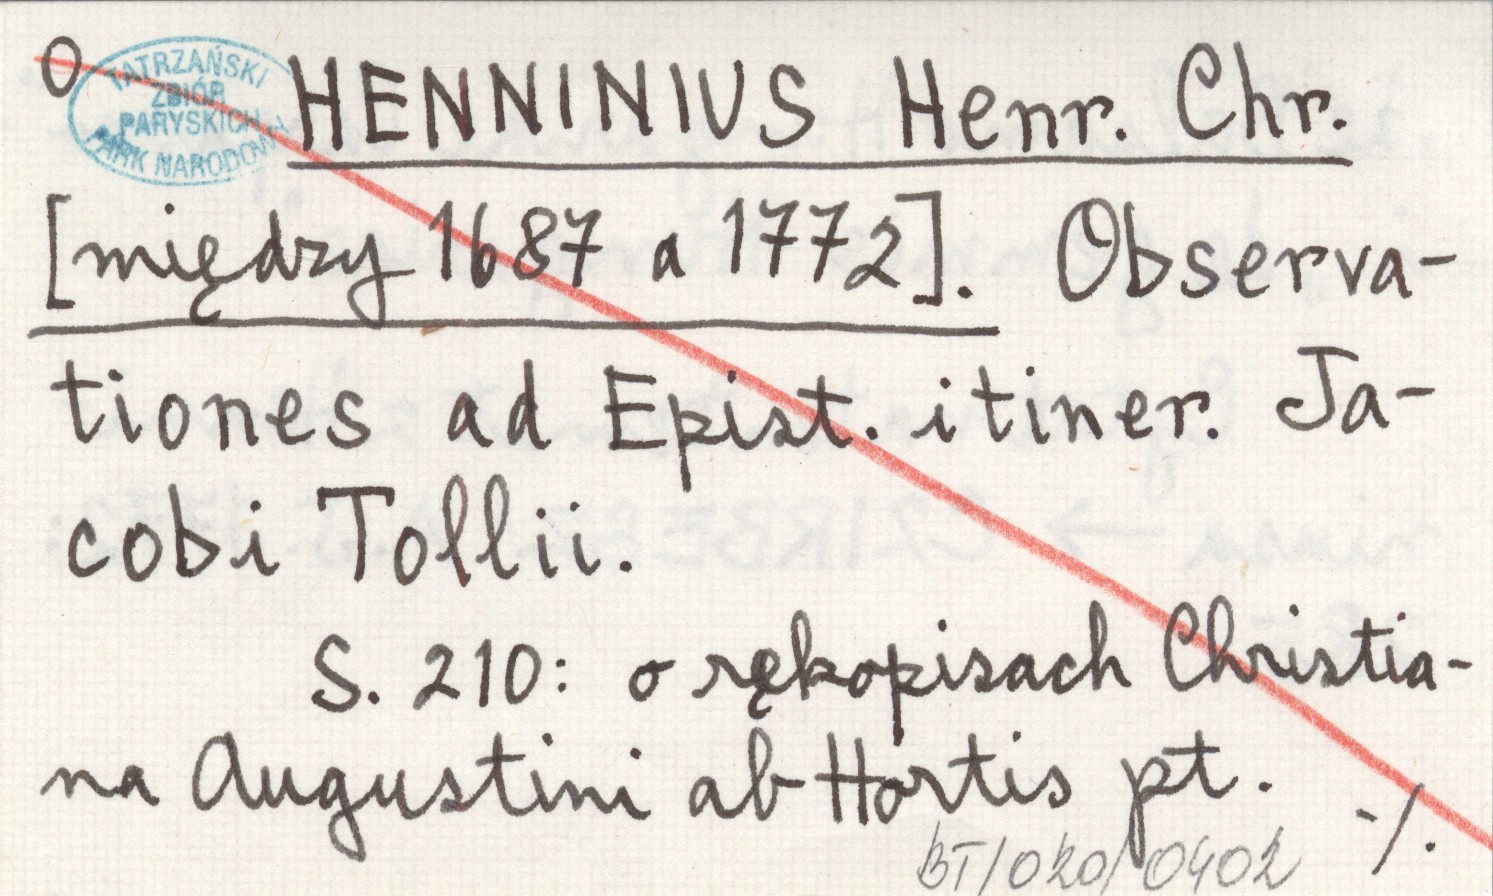 O
TATRZAŃSKI
ZBIÓR
PARYSKICH
PARK NARODOWY
HENNINIUS Henr. Chr.
[między 1687 a 1772]. Observa-
tiones ad Epist. itiner. Ja-
cobi Tollii.
S. 210: o rękopisach Christia-
na Augustini ab Hortis pt.
./.
BT/020/0402